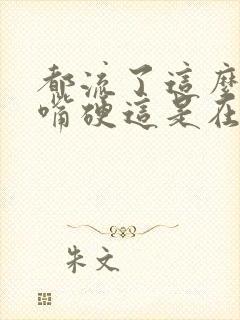 都流了這麼
嘴硬這是在
朱文